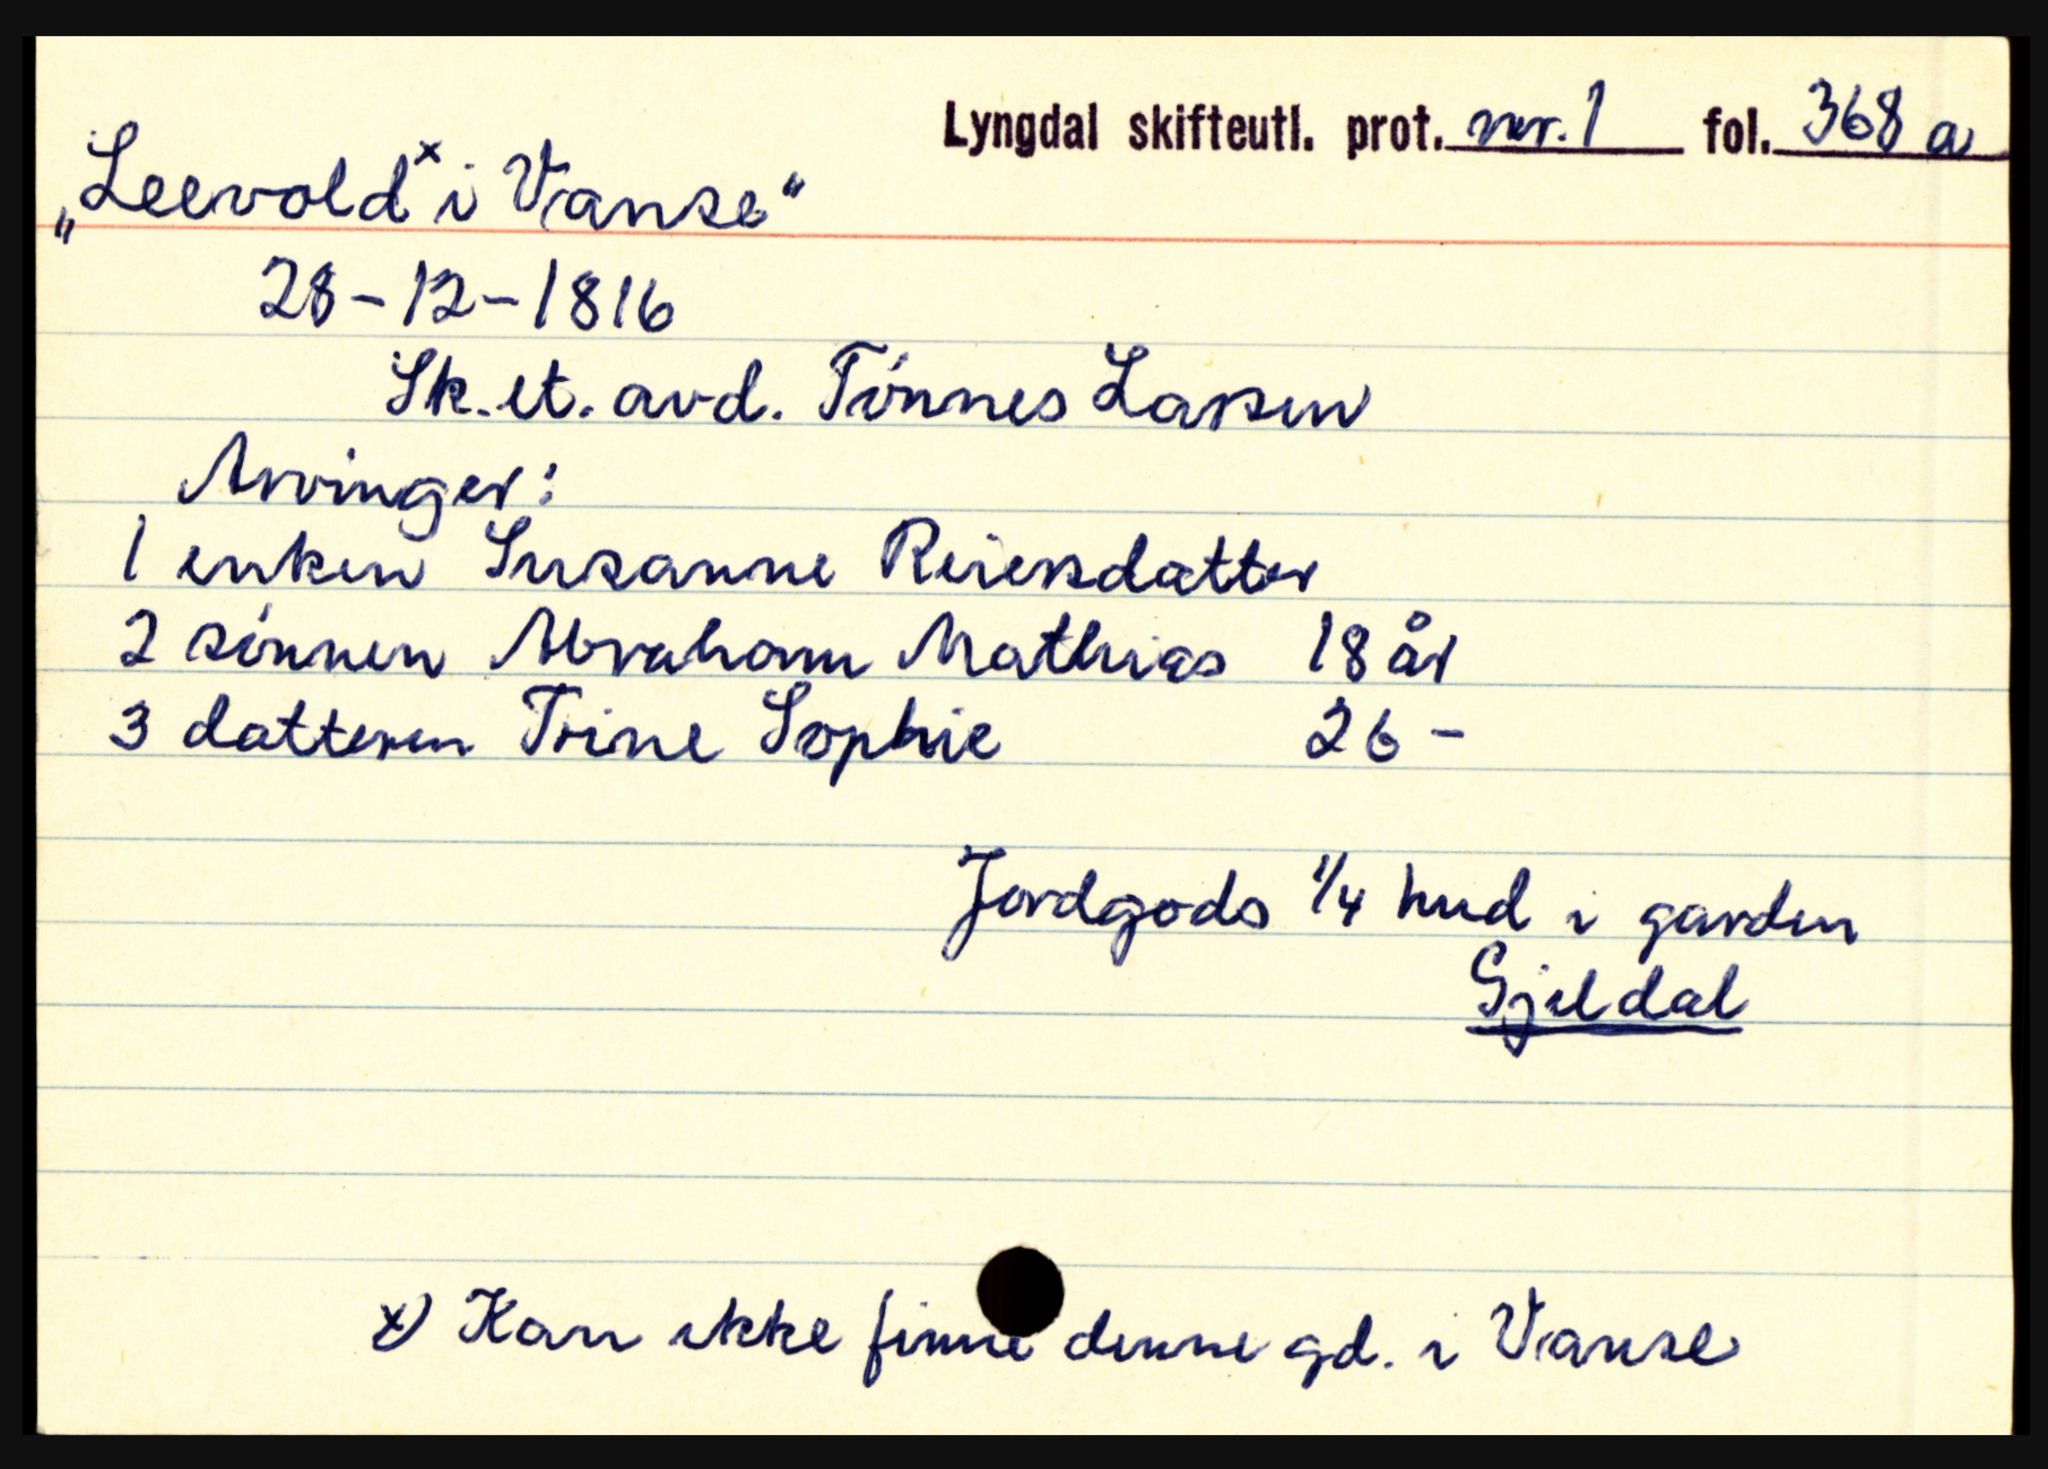 Lyngdal skifteutl. prot. nr. 1 fol. 368 a
„Leevold x i Vanse“
28-12-1816
Sk. et. avd. Tønnes Larsen
Arvinger:
1 enken Susanne Reiersdatter
2 sønnen Abraham Mathias 18 år
3 datteren Trine Sophie 26 -
Jordgods 1/4 hud i garden
Gjeldal
x) Kan ikke finne denne gd. i Vanse